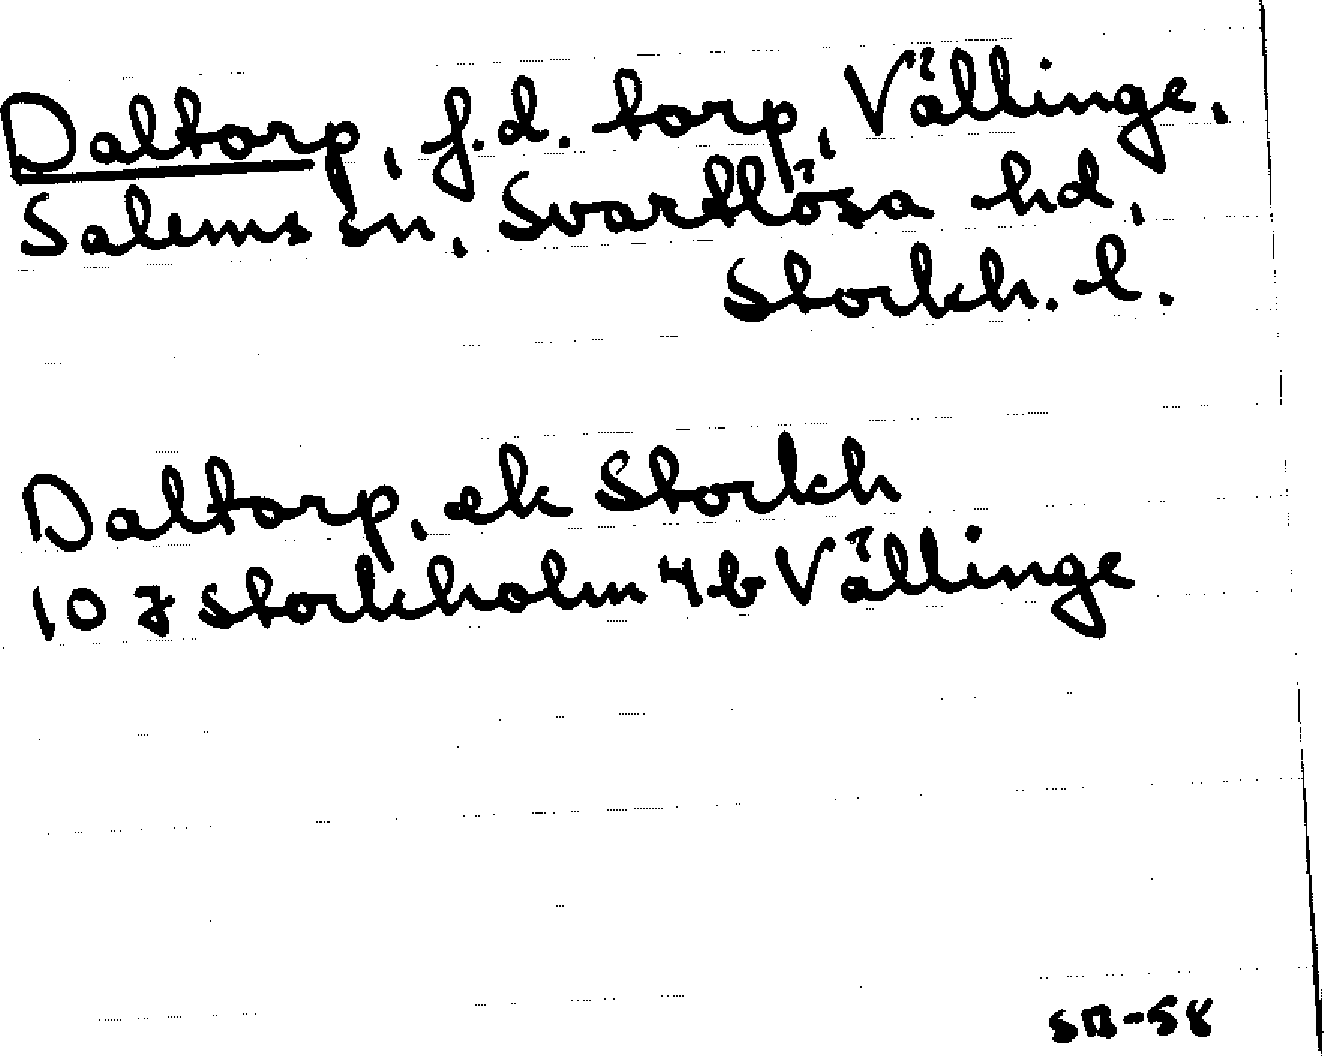 Daltorp, f.d. torp, Vällinge,
Salems sn, Svartlösa hd,
Stockh. l.
Daltorp, ek Stockh
10 J Stockholm 4 b Vällinge
SB-58